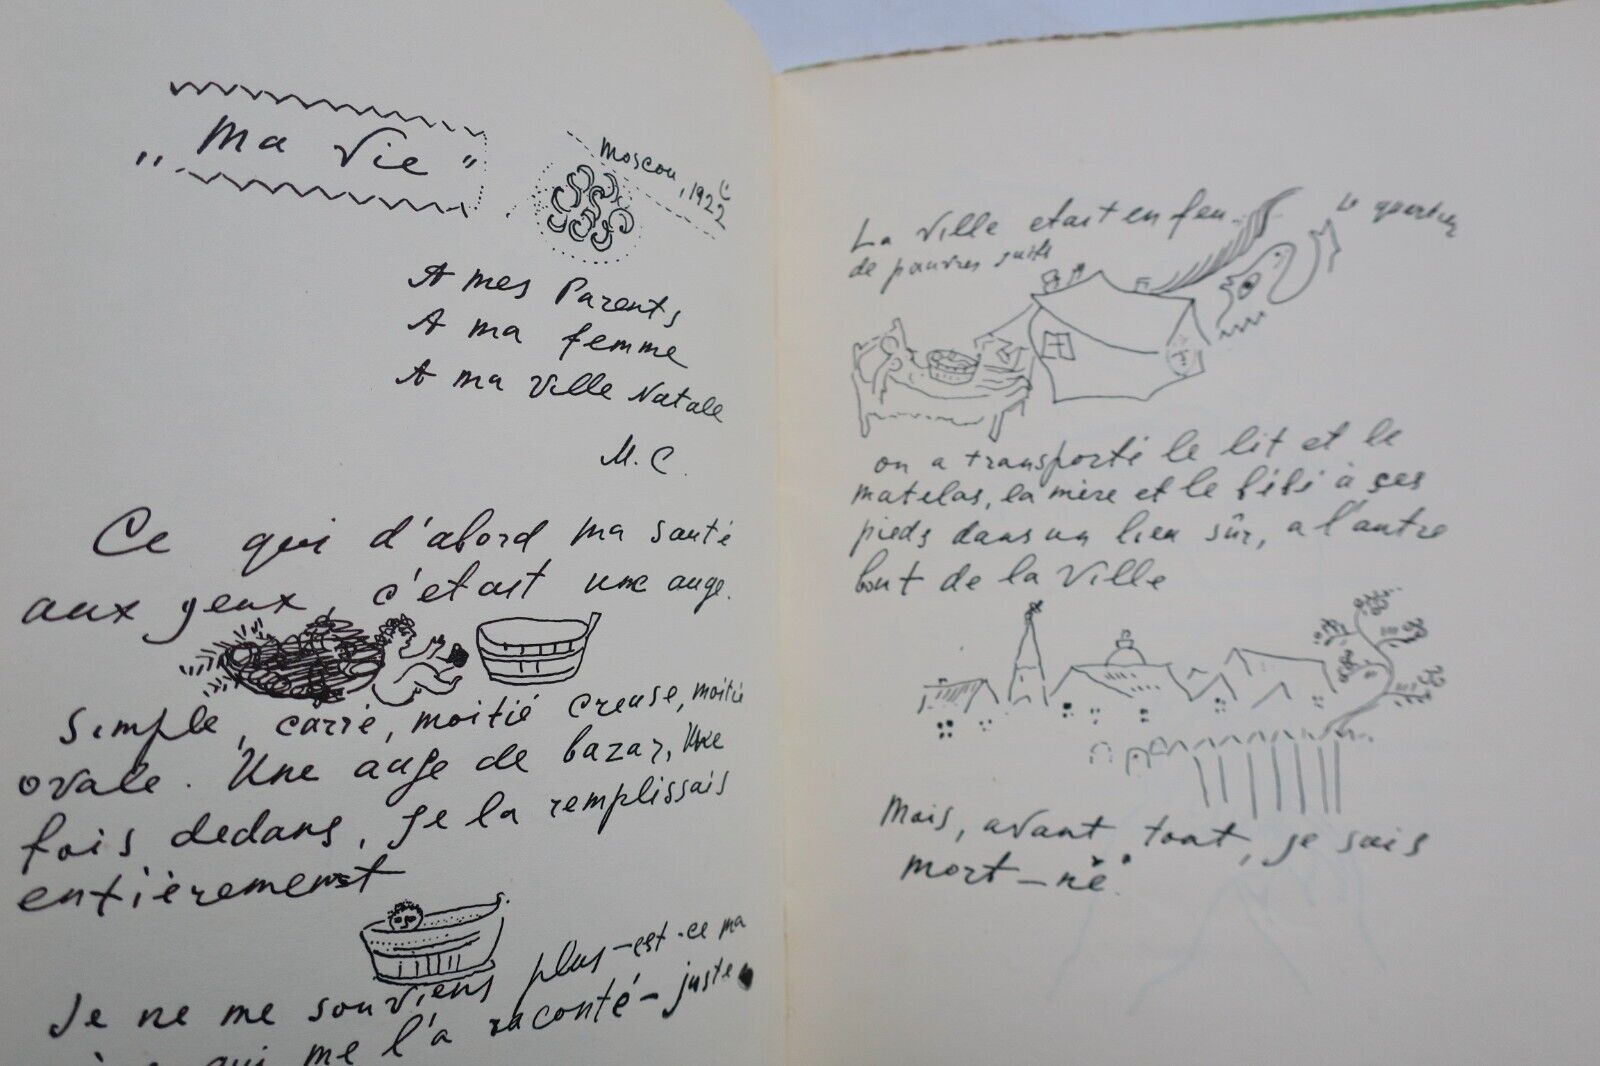 „ Ma Vie "
Moscou, 1922
A mes Parents
A ma femme
A ma Ville Natale
M. C.
Ce qui d'abord ma santé
aux yeux, c'etait une auge.
Simple, carré, moitié creuse, moitié
ovale. Une auge de bazar, Une
fois dedans, je la remplissais
entièrement
Je ne me souviens plus-est-ce ma
qui me l'a raconté- juste
La Ville etait en feu Le quartier
de pauvres juifs
on a transporté le lit et le
matelas, la mère et le bébé à ses
pieds dans un lieu sûr, a l'autre
bout de la Ville
Mais, avant tout, je suis
mort-né.